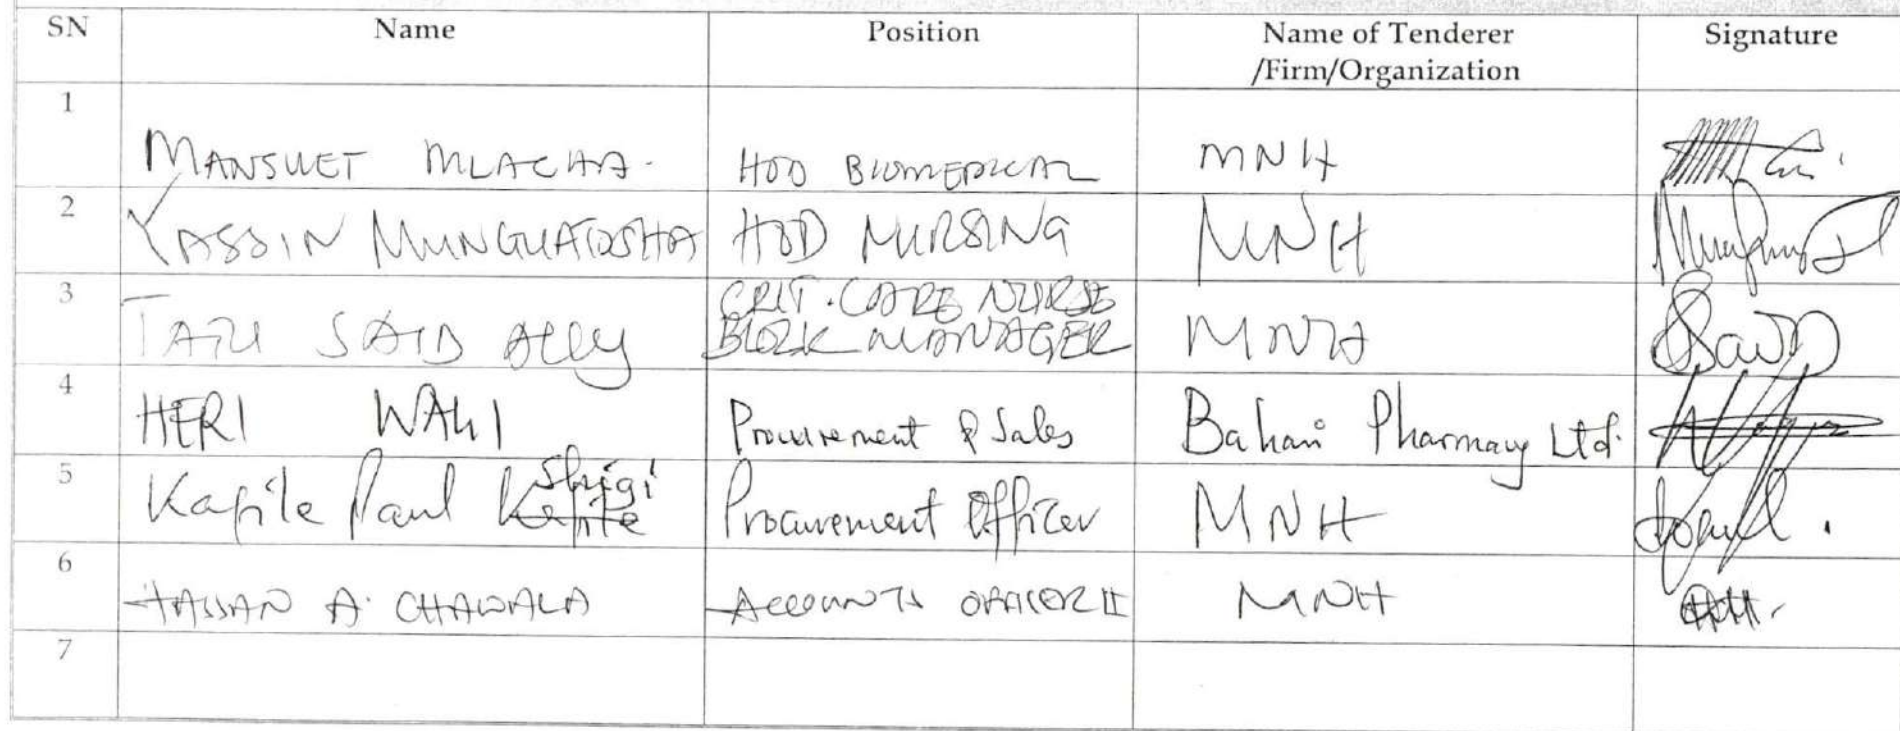 SN Name Position Name of Tenderer /Firm/Organization Signature
1 MANSUET MLACHA. HOD BIOMEDICAL MNH
2 YASSIN MUNGUATOSHA HOD NURSING MNH
3 SAID ALLY CRIT. CARE NURSE BLOCK MANAGER MNH
4 HERI WALI Procurement & Sales Bahari Pharmacy Ltd.
5 Kapile Paul Shigi Procurement Officer MNH
6 HASSAN A. CHAWALA ACCOUNTS OFFICER II MNH
7